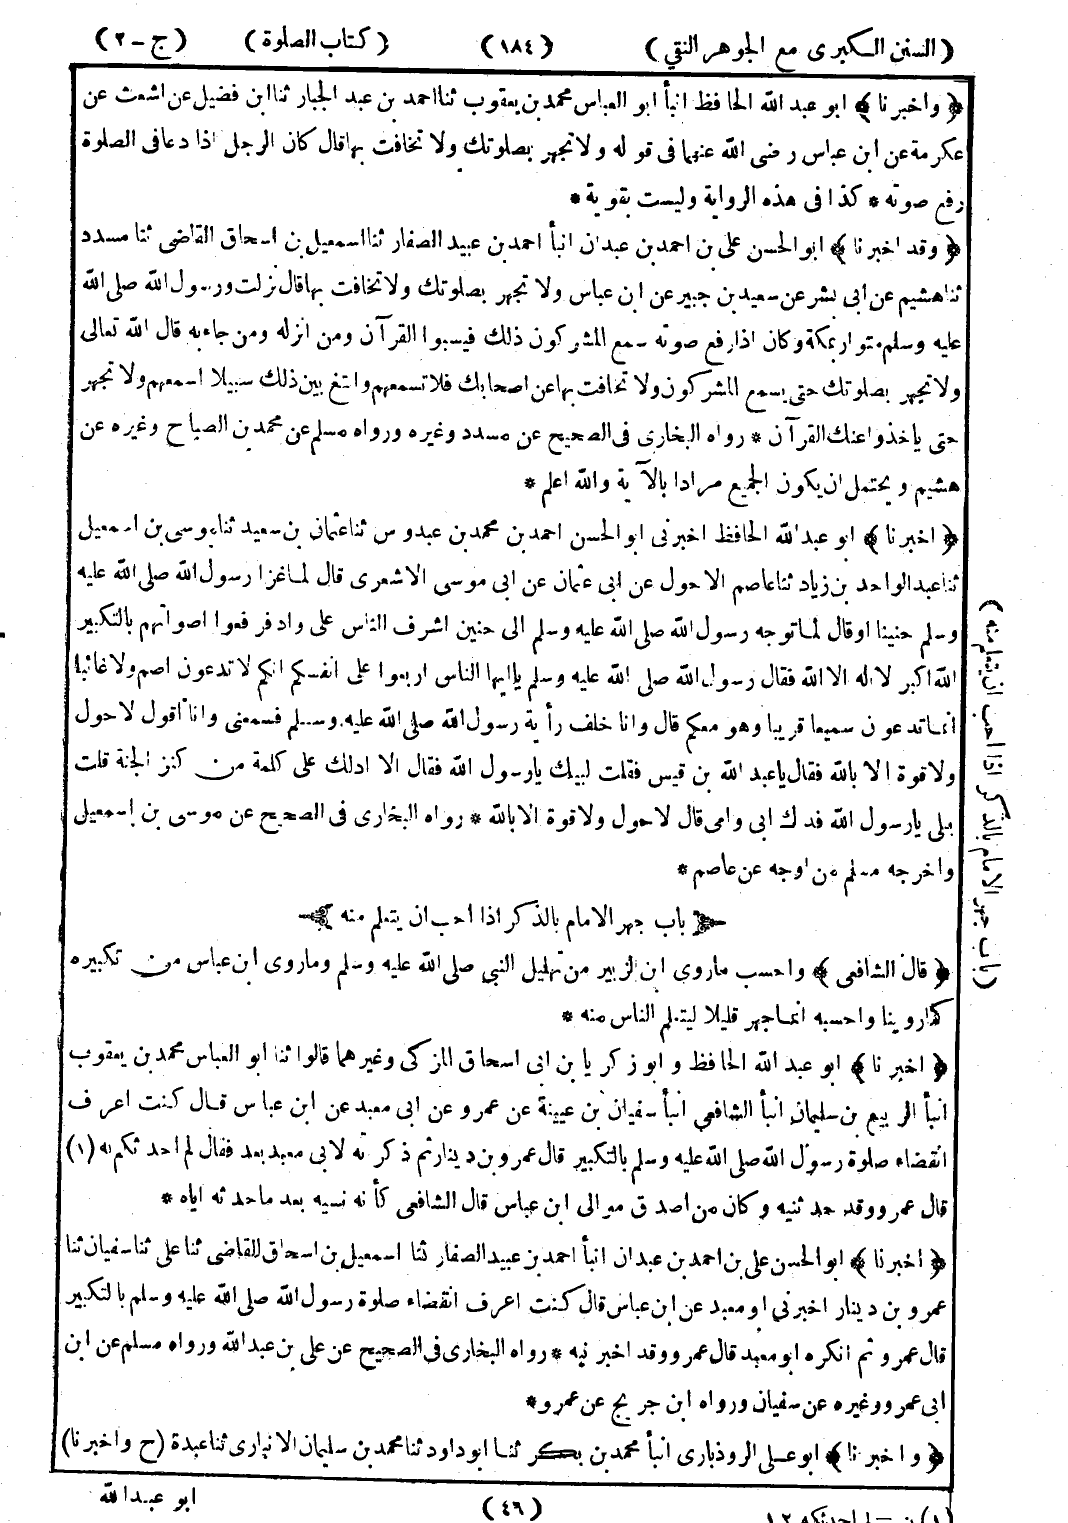 ( السنن الكبرى مع الجوهر النقي ) (١٨٤) ( كتاب الصلوة ) ( ج - ٢ )
﴿ واخبرنا ﴾ ابو عبد الله الحافظ انبأ ابو العباس محمد بن يعقوب ثنا احمد بن عبد الجبار ثنا ابن فضيل عن اشعث عن
عكرمة عن ابن عباس رضى الله عنهما فى قوله ولا تجهر بصلوتك ولا تخافت بها قال كان الرجل اذا دعا فى الصلوة
رفع صوته * كذا فى هذه الرواية وليست بقوية *
﴿ وقد اخبرنا ﴾ ابو الحسن على بن احمد بن عبدان انبأ احمد بن عبيد الصفار ثنا اسمعيل بن اسحاق القاضى ثنا مسدد
ثنا هشيم عن ابى بشر عن سعيد بن جبير عن ابن عباس ولا تجهر بصلوتك ولا تخافت بها قال نزلت ورسول الله صلى الله
عليه وسلم متوار بمكة وكان اذا رفع صوته سمع المشركون ذلك فيسبوا القرآن ومن انزله ومن جاء به قال الله تعالى
ولا تجهر بصلوتك حتى يسمع المشركون ولا تخافت بها عن اصحابك فلا تسمعهم وابتغ بين ذلك سبيلا اسمعهم ولا تجهر
حتى ياخذوا عنك القرآن * رواه البخارى فى الصحيح عن مسدد وغيره ورواه مسلم عن محمد بن الصباح وغيره عن
هشيم ويحتمل ان يكون الجميع مرادا بالآية والله اعلم *
﴿ اخبرنا ﴾ ابو عبد الله الحافظ اخبرنى ابو الحسن احمد بن محمد بن عبدوس ثنا عثمان بن سعيد ثنا موسى بن اسمعيل
ثنا عبد الواحد بن زياد ثنا عاصم الاحول عن ابى عثمان عن ابى موسى الاشعرى قال لما غزا رسول الله صلى الله عليه
وسلم حنينا او قال لما توجه رسول الله صلى الله عليه وسلم الى حنين اشرف الناس على واد فرفعوا اصواتهم بالتكبير
الله اكبر لا اله الا الله فقال رسول الله صلى الله عليه وسلم يا ايها الناس اربعوا على انفسكم انكم لا تدعون اصم ولا غائبا
انما تدعون سميعا قريبا وهو معكم قال وانا خلف رأية رسول الله صلى الله عليه وسلم فسمعنى وانا اقول لا حول
ولا قوة الا بالله فقال يا عبد الله بن قيس فقلت لبيك يا رسول الله فقال الا ادلك على كلمة من كنز الجنة قلت
بلى يا رسول الله فدك ابى وامى قال لا حول ولا قوة الا بالله * رواه البخارى فى الصحيح عن موسى بن إسمعيل
واخرجه مسلم من اوجه عن عاصم *
باب جهر الامام بالذكر اذا احب ان يتعلم منه
﴿ قال الشافعى ﴾ واحسب ما روى ابن الزبير من تهليل النبي صلى الله عليه وسلم وما روى ابن عباس من تكبيره
كما روينا واحسبه انما جهر قليلا ليتعلم الناس منه *
﴿ اخبرنا ﴾ ابو عبد الله الحافظ و ابو زكريا بن ابى اسحاق المزكى وغيرهما قالوا ثنا ابو العباس محمد بن يعقوب
انبأ الربيع بن سليمان انبأ الشافعى انبأ سفيان بن عيينة عن عمرو عن ابى معبد عن ابن عباس قال كنت اعرف
انقضاء صلوة رسول الله صلى الله عليه وسلم بالتكبير قال عمرو بن دينار ثم ذكرته لابى معبد بعد فقال لم احدثكم به (١)
قال عمرو وقد حدثنيه وكان من اصدق موالى ابن عباس قال الشافعى كأنه نسيه بعد ما حدثه اياه *
﴿ اخبرنا ﴾ ابو الحسن على بن احمد بن عبدان انبأ احمد بن عبيد الصفار ثنا اسمعيل بن اسحاق القاضى ثنا على ثنا سفيان ثنا
عمرو بن دينار اخبرنى ابو معبد عن ابن عباس قال كنت اعرف انقضاء صلوة رسول الله صلى الله عليه وسلم بالتكبير
قال عمرو ثم انكره ابو معبد قال عمرو وقد اخبرنيه * رواه البخارى فى الصحيح عن على بن عبد الله ورواه مسلم عن ابن
ابى عمرو وغيره عن سفيان ورواه ابن جريج عن عمرو *
﴿ واخبرنا ﴾ ابو على الروذبارى انبأ محمد بن بكر ثنا ابو داود ثنا محمد بن سليمان الانبارى ثنا عبدة (ح واخبرنا)
ابو عبد الله
(٤٦)
( باب جهر الامام بالذكر اذا احب ان يتعلم منه )